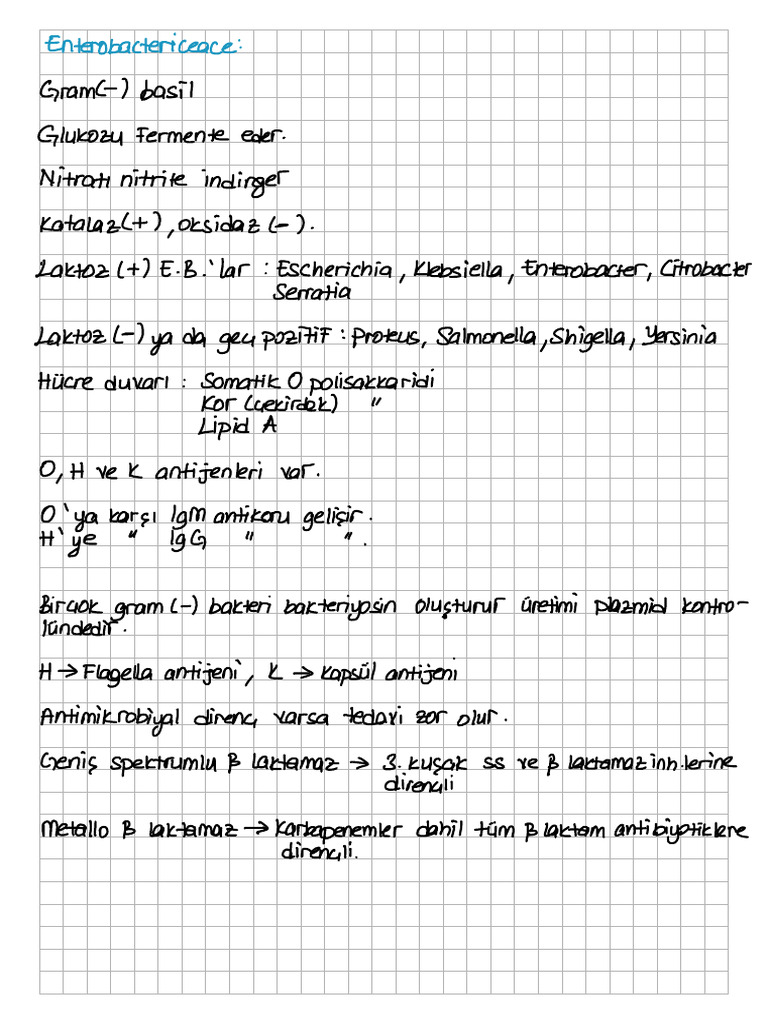 Enterobactericeace:
Gram(-) basil
Glukozu fermente eder.
Nitratı nitrite indirger
Katalaz(+), oksidaz (-).
Laktoz (+) E.B.'lar : Escherichia, Klebsiella, Enterobacter, Citrobacter
Serratia
Laktoz (-) ya da geç pozitif : Proteus, Salmonella, Shigella, Yersinia
Hücre duvarı : Somatik O polisakkaridi
Kor (çekirdek) "
Lipid A
O, H ve K antijenleri var.
O'ya karşı IgM antikoru gelişir.
H'ye " IgG " ".
Birçok gram (-) bakteri bakteriyosin oluşturur üretimi plazmid kontro-
lündedir.
H → Flagella antijeni, K → Kapsül antijeni
Antimikrobiyal direnç varsa tedavi zor olur.
Geniş spektrumlu β laktamaz → 3. kuşak ss ve β laktamaz inh.lerine
dirençli
Metallo β laktamaz → Karbapenemler dahil tüm β laktam antibiyotiklere
dirençli.